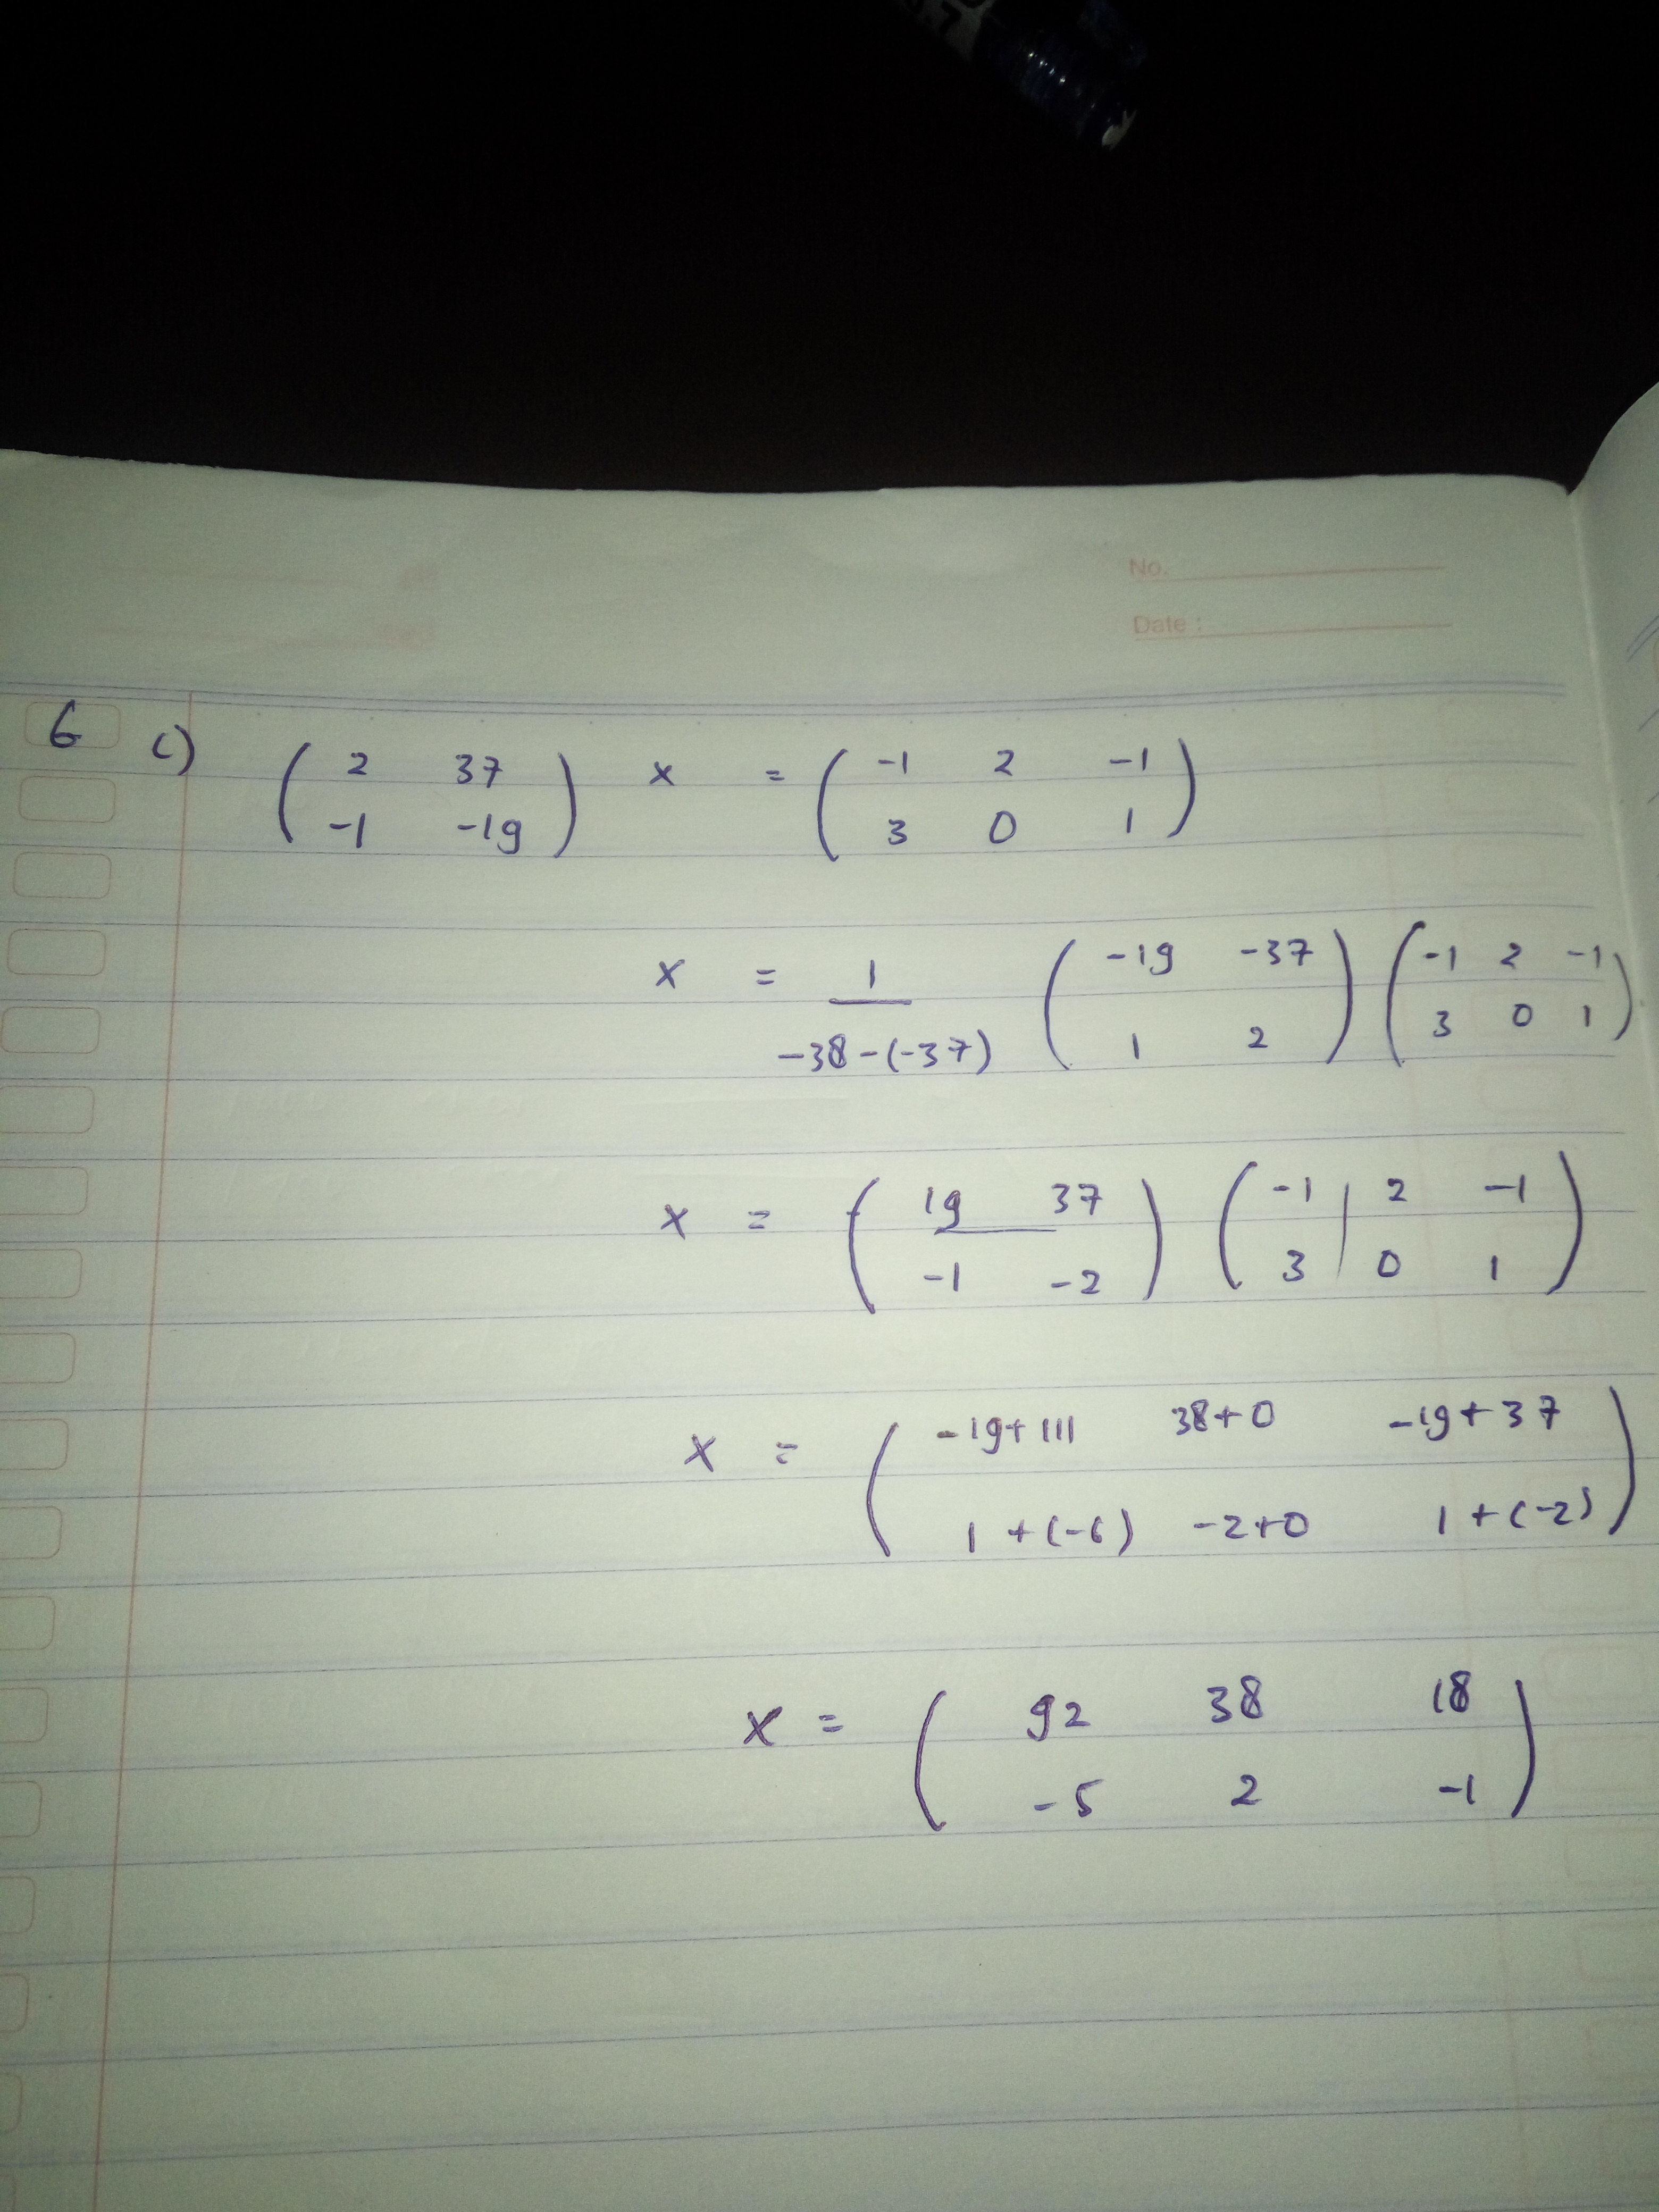 No.
Date :
6 c) ( 2 37 ) x = ( -1 2 -1 )
( -1 -19 ) ( 3 0 1 )
x = 1 ( -19 -37 ) ( -1 2 -1 )
-38-(-37) ( 1 2 ) ( 3 0 1 )
x = ( 19 37 ) ( -1 | 2 -1 )
( -1 -2 ) ( 3 | 0 1 )
x = ( -19+111 38+0 -19+37 )
( 1+(-6) -2+0 1+(-2) )
x = ( 92 38 18 )
( -5 2 -1 )